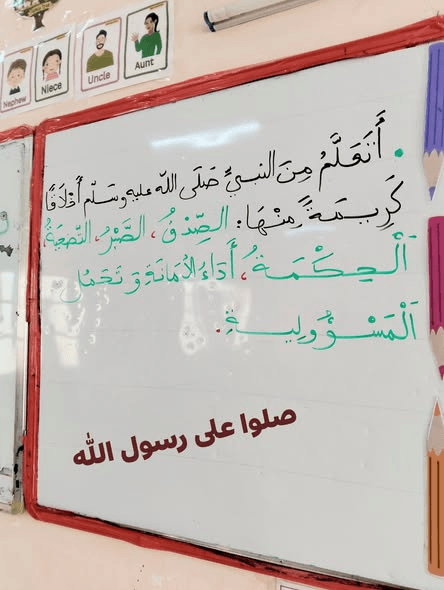 Nephew
Niece
Uncle
Aunt
أَتَعَلَّمُ مِنَ النبيِّ صَلَى اللّه عليه وسَلّم أَخْلَاقًا
كَرِيمَةً مِنْهَا: الصِّدْقُ، الصَّبْرُ، التَّضحِيَةُ
اَلْحِكْمَةُ، أَدَاءُ الأمَانَةِ وَ تَحَمُل
اَلْمَسْؤُولِيةِ.
صلوا على رسول الله